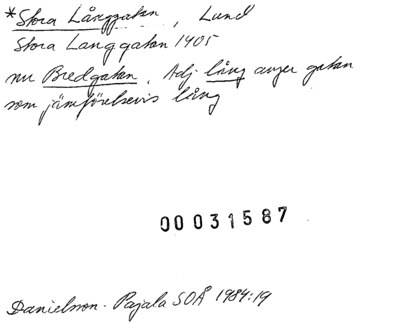 *Stora Långgatan, Lund
Stora Langgatan 1405
nu Bredgatan. Adj lång anger gatan
som jämförelsevis lång
00031587
Danielsson-Pajala SOÅ 1984:19